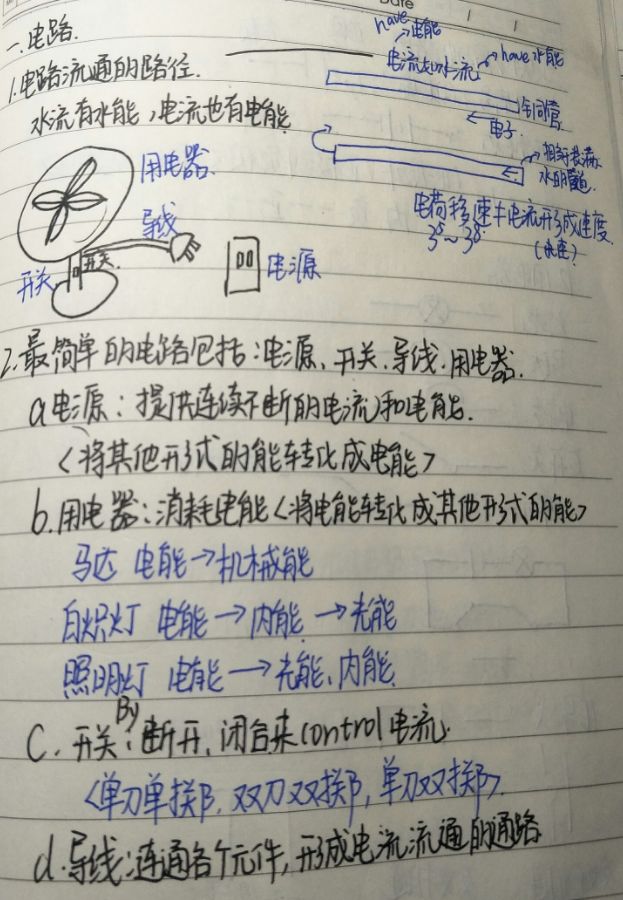 Date
一.电路.
have电能
电流如水流
have水能
1.电路流通的路径.
水流有水能,电流也有电能
铜管.
电子
水的管道.
用电器
导线
开关
开关.
电源
电荷移速≠电流形成速度.
(光速)
2.最简单的电路包括:电源、开关.导线.用电器.
a电源:提供连续不断的电流和电能.
<将其他形式的能转化成电能>
b.用电器:消耗电能<将电能转化成其他形式的能>
马达 电能→机械能
白炽灯 电能→内能→光能
照明灯 电能→光能、内能.
C.开关:By断开,闭合来Control电流.
<单刀单掷,双刀双掷,单刀双掷>.
d.导线:连通各个元件,形成电流流通的通路